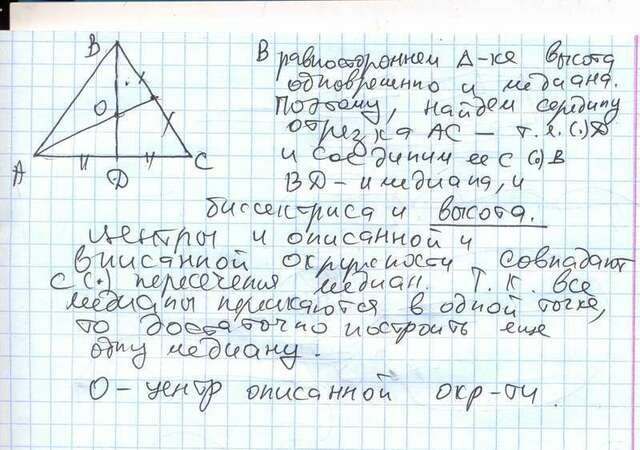 В равностороннем Δ-ке высота
одновременно и медиана.
Поэтому, найдем середину
отрезка AC — т.е. (·)D
и соединим ее с (·)B
BD - и медиана, и
биссектриса и высота.
Центры и описанной и
вписанной окружности совпадают
с (·) пересечения медиан. Т.к. все
медианы перекаются в одной точке,
то достаточно построить еще
одну медиану.
O - центр описанной окр-ти.
B
O
A
D
C